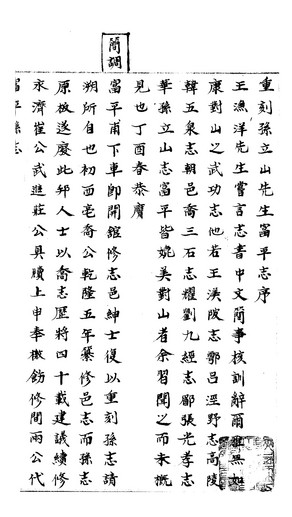 簡調
重刻孫立山先生富平志序
王漁洋先生嘗言志書中文簡事核訓辭爾雅無如
康對山之武功志他若王渼陂志鄠呂涇野志高陵
韓五泉志朝邑喬三石志耀劉九經志郿張光孝志
華孫立山志富平皆媲美對山者余習聞之而未概
見也丁酉春恭膺
富平甫下車即開館修志邑紳士復以重刻孫志請
朔所自也初西亳喬公乾隆五年纂修邑志而孫志
原板遂廢此邦人士以喬志歷將四十載建議續修
永濟崔公武進莊公具牘上申奉檄飭修間兩公代
富平孫志